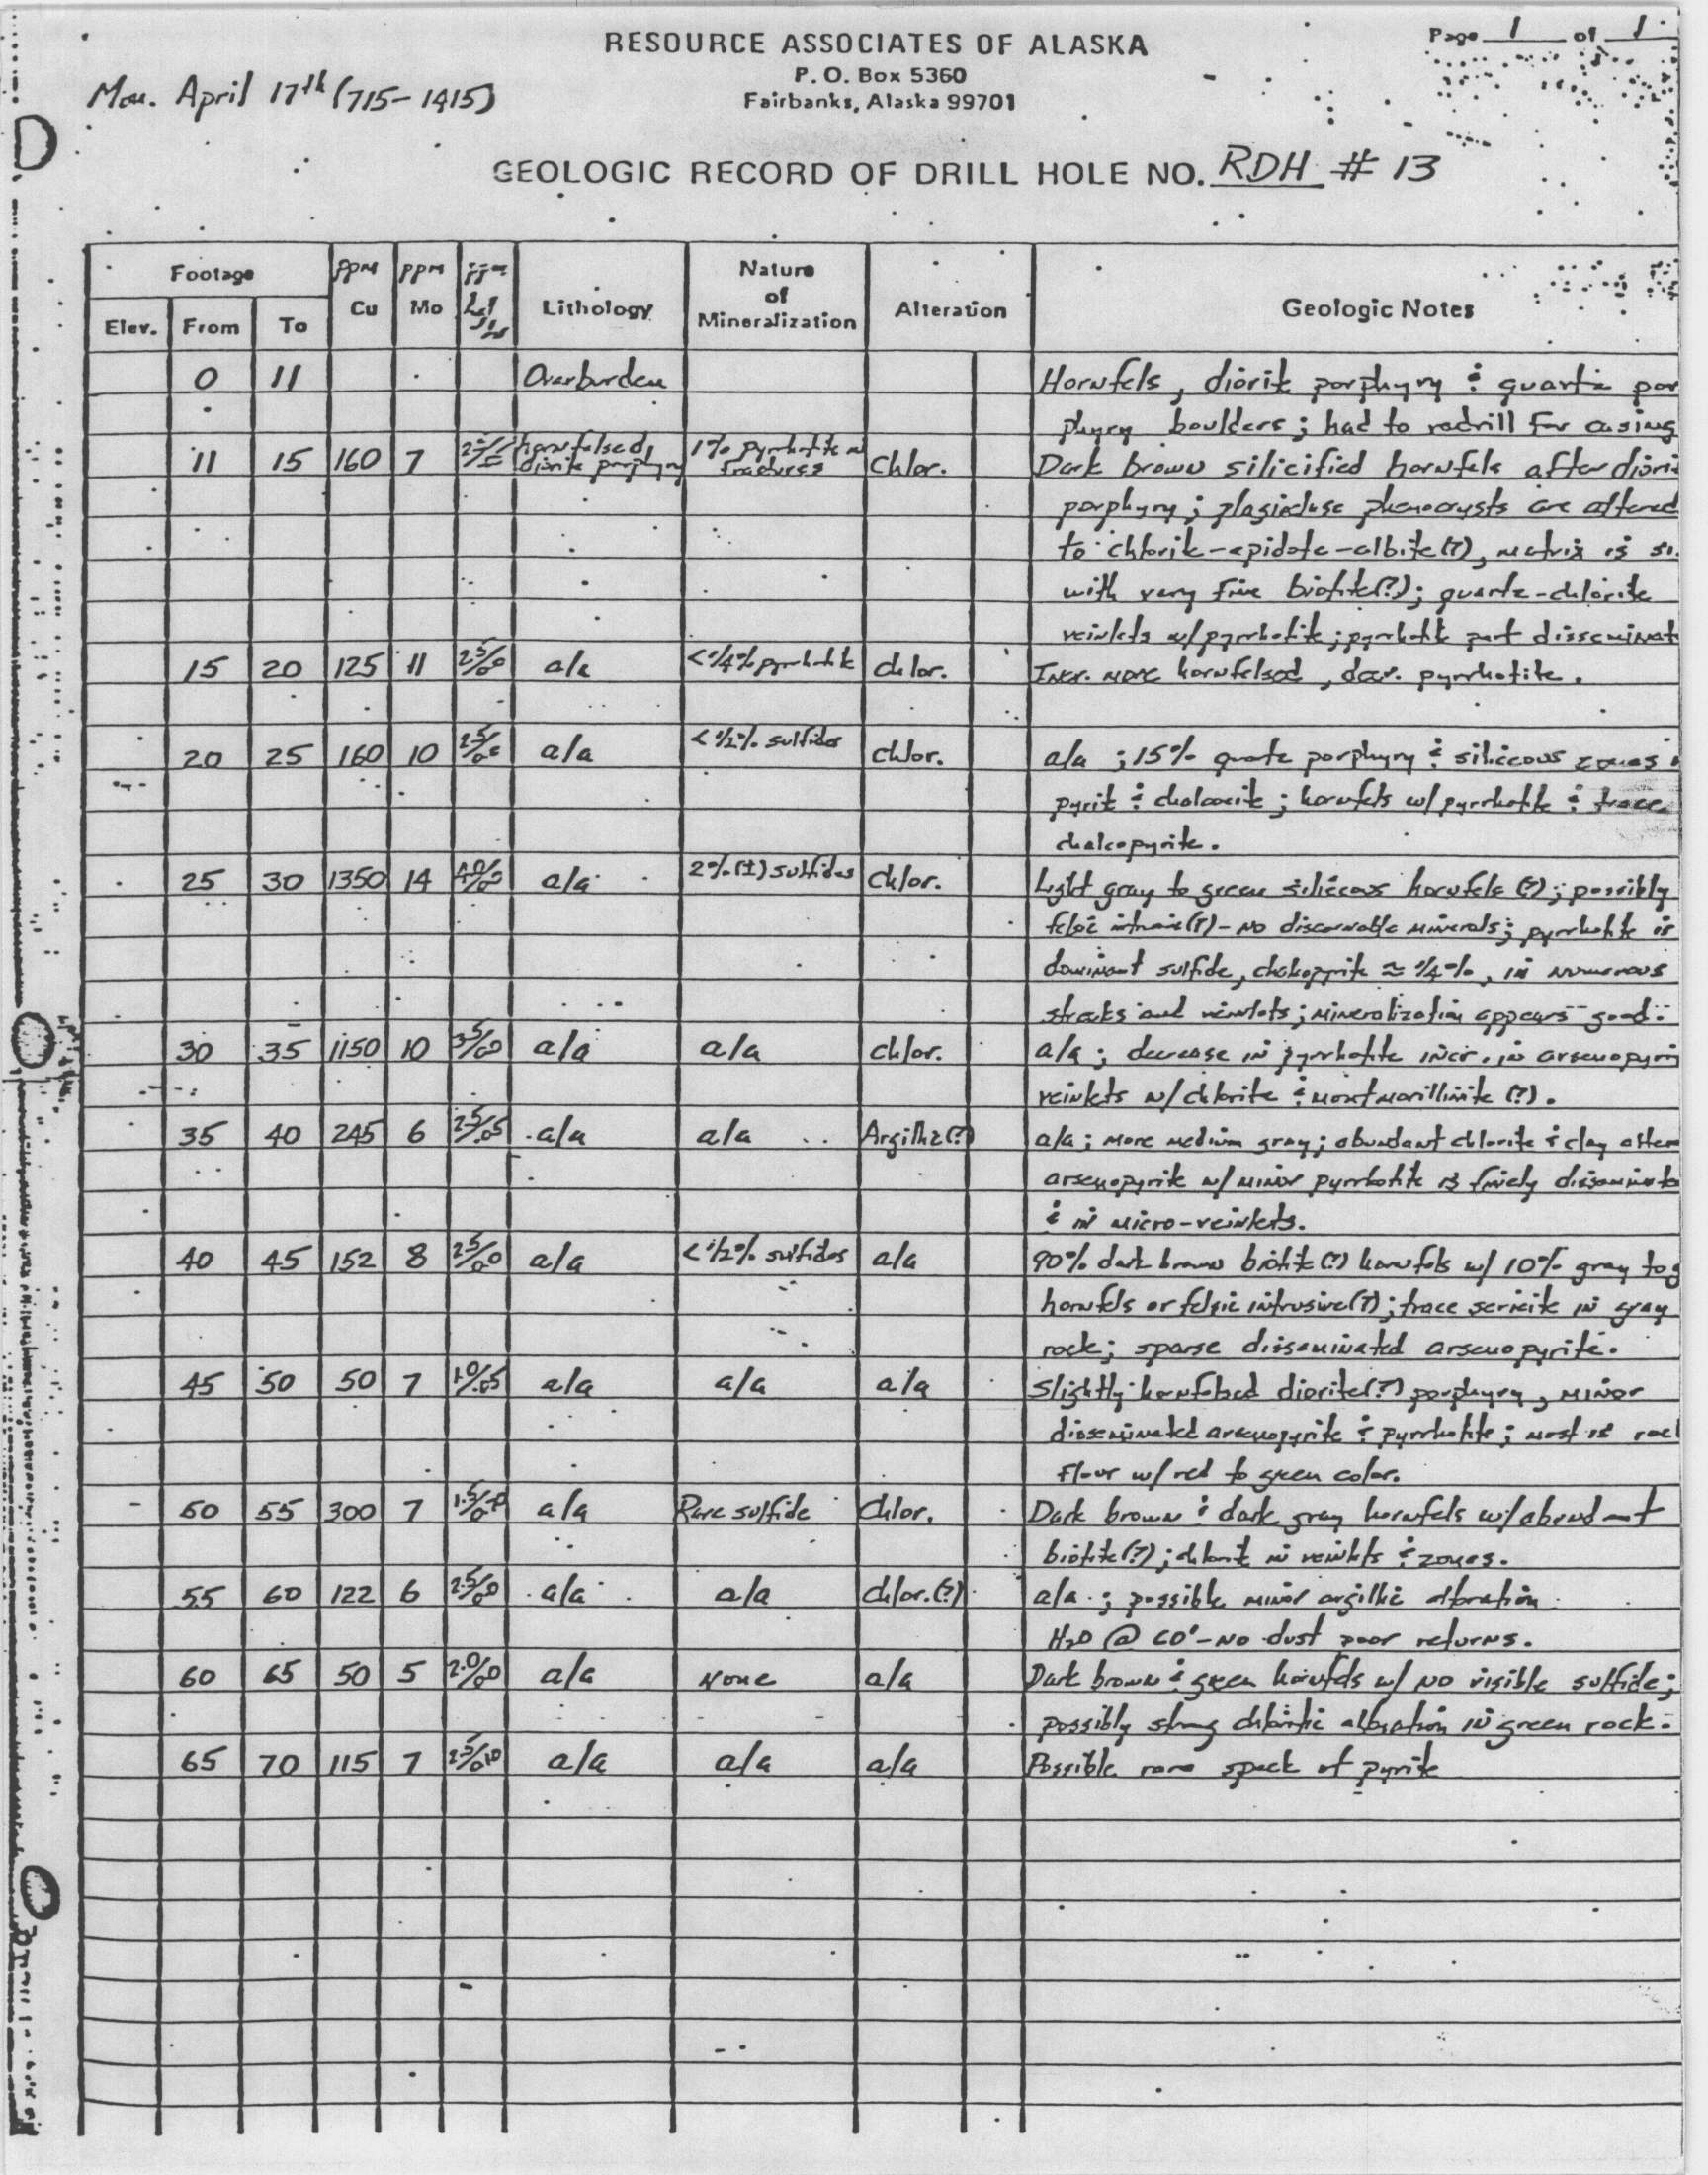 Page 1 of 1
RESOURCE ASSOCIATES OF ALASKA
P. O. Box 5360
Fairbanks, Alaska 99701
Mon. April 17th (715-1415)
GEOLOGIC RECORD OF DRILL HOLE NO. RDH # 13
Footage ppm Cu ppm Mo Lithology Nature of Mineralization Alteration Geologic Notes
Elev. From To
0 11 Overburden Hornfels, diorite porphyry & quartz por
phyry boulders; had to redrill for casing
11 15 160 7 hornfelsed, diorite porphyry 1% pyrrhotite in fractures Chlor. Dark brown silicified hornfels after diori
porphyry; plagioclase phenocrysts are altered
to chlorite-epidote-albite(?), matrix is si.
with very fine biotite(?); quartz-chlorite
veinlets w/pyrrhotite; pyrrhotite part disseminat
15 20 125 11 a/a <1/4% pyrrhotite chlor. Incr. more hornfelsed, decr. pyrrhotite.
20 25 160 10 a/a <1/2% sulfides chlor. a/a; 15% quartz porphyry & siliceous zones
pyrite & chalcocite; hornfels w/pyrrhotite & trace
chalcopyrite.
25 30 1350 14 a/a 2%(±) sulfides chlor. Light gray to green siliceous hornfels (?); possibly
felsic intrusive(?) - no discernable minerals; pyrrhotite is
dominant sulfide, chalcopyrite ≈ 1/4%, in numerous
streaks and veinlets; mineralization appears good.
30 35 1150 10 a/a a/a chlor. a/a; decrease in pyrrhotite incr. in arsenopyri
veinlets w/chlorite & montmorillinite (?).
35 40 245 6 2.5/.05 a/a a/a Argillic(?) a/a; more medium gray; abundant chlorite & clay alter
arsenopyrite w/ minor pyrrhotite is finely disseminate
& in micro-veinlets.
40 45 152 8 a/a <1/2% sulfides a/a 90% dark brown biotite(?) hornfels w/ 10% gray to g
hornfels or felsic intrusive(?); trace sericite in gray
rock; sparse disseminated arsenopyrite.
45 50 50 7 1.0/.05 a/a a/a a/a Slightly hornfelsed diorite(?) porphyry, minor
disseminated arsenopyrite & pyrrhotite; most is rock
flour w/ red to green color.
50 55 300 7 a/a Rare sulfide Chlor. Dark brown & dark gray hornfels w/abundant
biotite(?); chlorite in veinlets & zones.
55 60 122 6 a/a a/a chlor.(?) a/a; possible minor argillic alteration
H2O @ 60' - no dust poor returns.
60 65 50 5 a/a None a/a Dark brown & green hornfels w/ no visible sulfide;
possibly strong chloritic alteration in green rock.
65 70 115 7 a/a a/a a/a Possible rare speck of pyrite